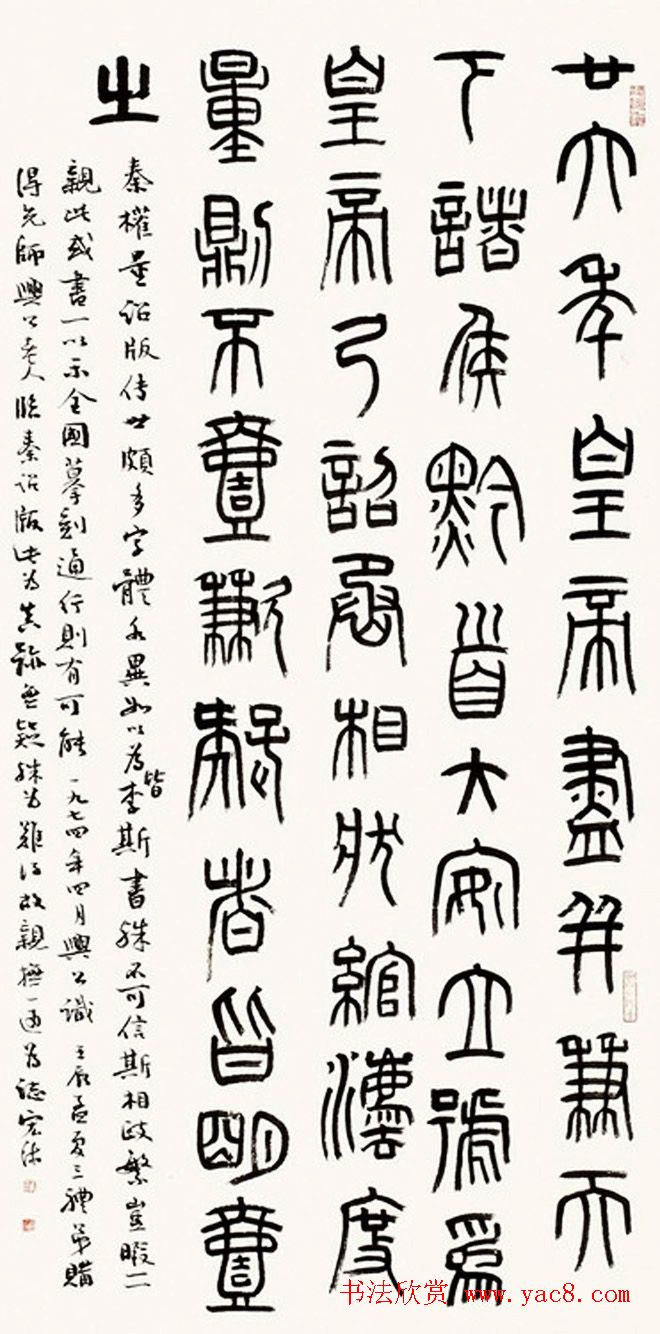 廿六年皇帝盡并兼天
下諸侯黔首大安立號為
皇帝乃詔丞相狀綰灋度
量則不壹歉疑者皆明壹
之
秦權量詔版传世頗多字體各異如以為皆李斯書殊不可信斯相政繁豈暇一一
親此或書一以示全國摹刻通行則有可能一九七四年四月興公識壬辰孟夏三禮弟購
得先師興公老人臨秦詔版此為真跡無疑殊為難得故親撫一通為誌
书法欣赏 www.yac8.com